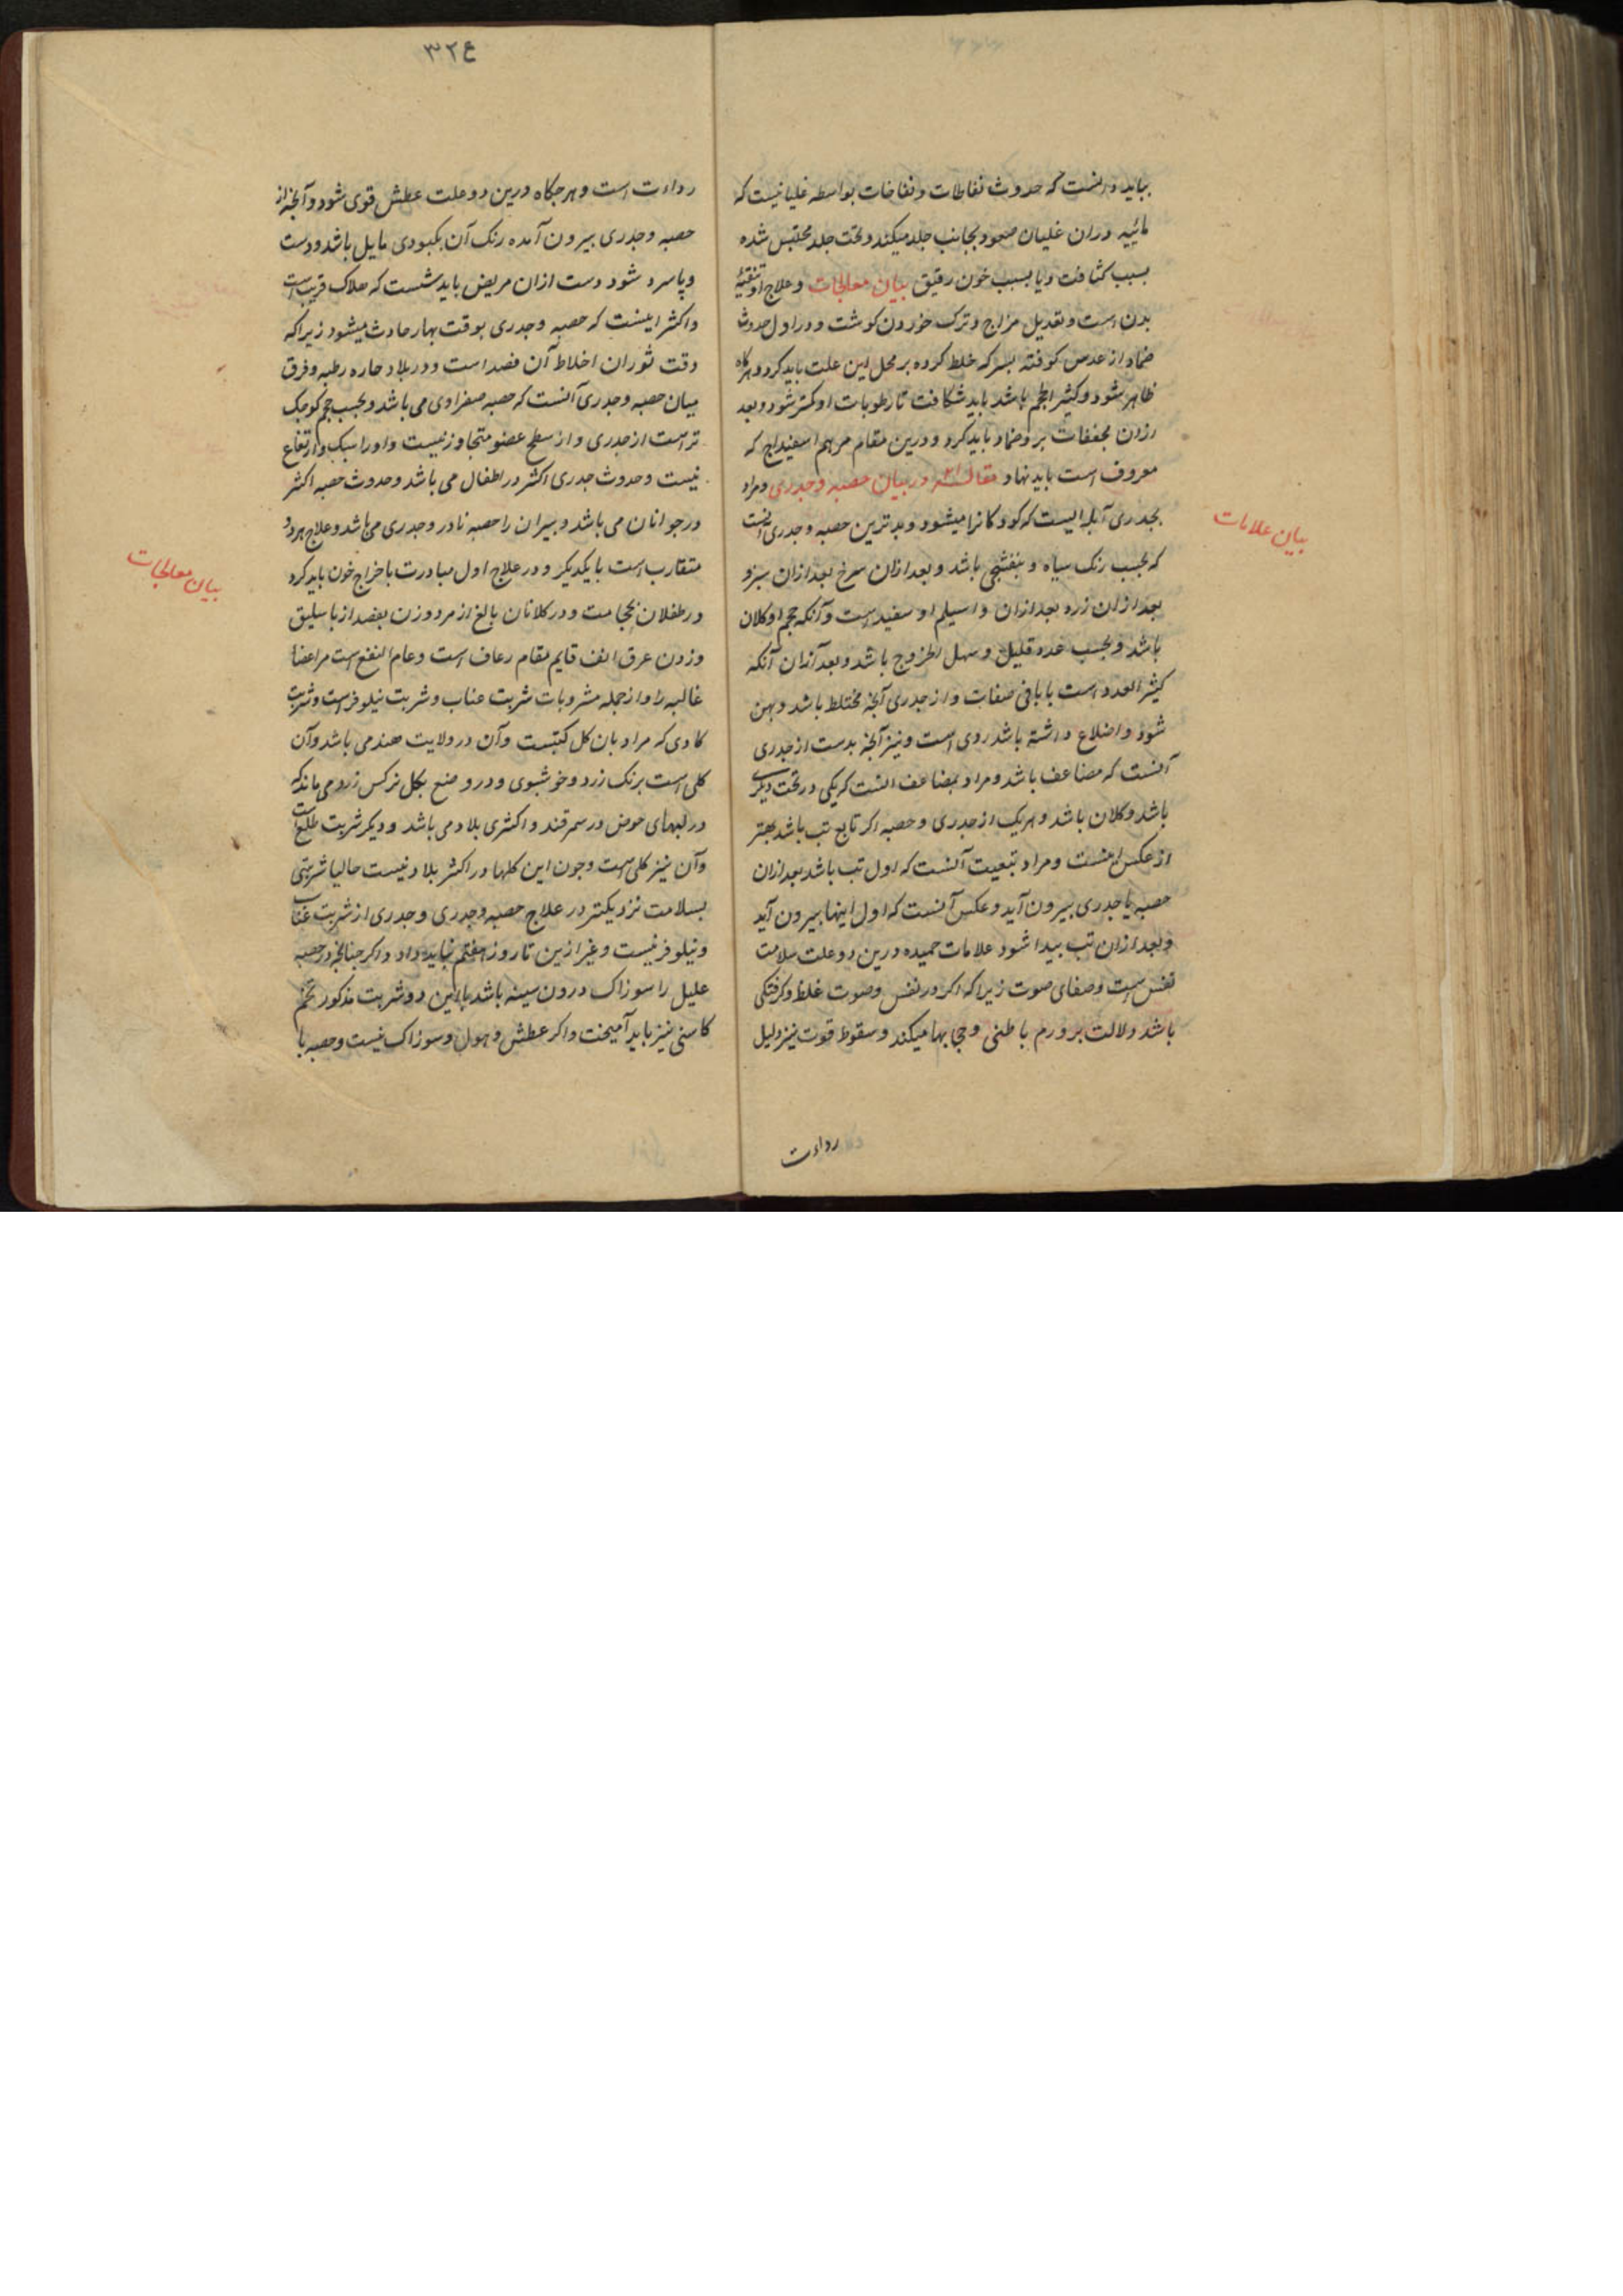 بباید دانست که حدوث نفاطات و نفاخات بواسطه غلیانیست که
مائیه دران غلیان صعود بجانب جلد میکند و تحت جلد محتبس شده
بسبب کثافت و یا بسبب خون رقیق بیان معالجات و علاج او تنقیه
بدن است و تعدیل مزاج و ترک خوردن کوشت و در اول حدوث
ضماد از عدس کوفته بسرکه خلط کرده بر محل این علت باید کرد و هرکاه
ظاهر شود و کثیر الحجم باشد باید شکافت تا رطوبات او کمتر شود و بعد
ازان مجففات برو ضماد باید کرد و درین مقام مرهم اسفیداج که
معروف است باید نهاد مقاله در بیان حصبه و جدری و مراد
بجدری آبله ایست که کودکانرا میشود و بدترین حصبه و جدری آنست
که بحسب رنک سیاه و بنفشجی باشد و بعد ازان سرخ بعد ازان سبز و
بعد ازان زرد بعد ازان و اسیلم او سفید است و آنکه حجم او کلان
باشد و بحسب عدد قلیل و سهل الخروج باشد و بعد ازان آنکه
کثیر العدد است با باقی صفات و از جدری آنچه مختلط باشد و پهن
شود و اضلاع داشته باشد ردی است و نیز آنچه بدست از جدری
آنست که مضاعف باشد و مراد بمضاعف آنست که یکی در تحت دیکری
باشد و کلان باشد و هریک از جدری و حصبه اکر تابع تب باشد بهتر
از عکس اینست و مراد تبعیت آنست که اول تب باشد بعد ازان
حصبه یا جدری بیرون آید و عکس آنست که اول اینها بیرون آید
و بعد ازان تب پیدا شود علامات حمیده درین دو علت سلامت
نفس است و صفای صوت زیرا که اکر در نفس و صوت غلظ و کرفتکی
باشد دلالت بر ورم باطنی و حجابها میکند و سقوط قوت نیز دلیل
رداءت
بیان علامات
۳۲۴
رداءت است و هرجکاه درین دو علت عطش قوی شود و آنچه از
حصبه و جدری بیرون آمده رنک آن بکبودی مایل باشد و دست
و پا سرد شود دست ازان مریض باید شست که هلاک قریب است
و اکثر اینست که حصبه و جدری بوقت بهار حادث میشود زیرا که
وقت ثوران اخلاط آن فصد است و در بلاد حاره رطبه و فرق
میان حصبه و جدری آنست که حصبه صفراوی می باشد و بحسب حجم کوچک
تر است از جدری و از سطح عضو متجاوز نیست و اورا سبک و ارتفاع
نیست و حدوث جدری اکثر در اطفال می باشد و حدوث حصبه اکثر
در جوانان می باشد و پیران را حصبه نادر و جدری می باشد و علاج هردو
متقارب است با یکدیکر و در علاج اول مبادرت باخراج خون باید کرد
در طفلان بحجامت و در کلانان بالغ از مرد و زن بفصد از باسلیق
و زدن عرق انف قایم مقام رعاف است و عام النفع است مر اعضا
غالبه را و از جمله مشروبات شربت عناب و شربت نیلوفر است و شربت
کادی که مراد بان کل کتبست و آن در ولایت هند می باشد و آن
کلی است برنک زرد و خوشبوی و در وضع بکل نرکس زرد می ماند که
در لبهای حوض در سمرقند و اکثری بلاد می باشد و دیکر شربت طلع است
و آن نیز کلی است و چون این کلها در اکثر بلاد نیست حالیا شربتی
بسلامت نزدیکتر در علاج حصبه و جدری و جدری از شربت عناب
و نیلوفر نیست و غیر ازین تا روز هفتم نباید داد و اکر چنانچه در حصبه
علیل را سوزاک درون سینه باشد با این دو شربت مذکور تخم
کاسنی نیز باید آمیخت و اکر عطش و هول و سوزاک نیست و حصبه با
بیان معالجات